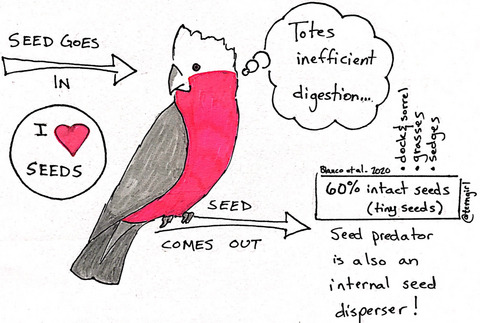 SEED GOES
IN
I
SEEDS
Totes
inefficient
digestion...
SEED
COMES OUT
• dock & sorrel
• grasses
• sedges
Blanco et al. 2020
60% intact seeds
(tiny seeds)
@terngirl
Seed predator
is also an
internal seed
disperser!